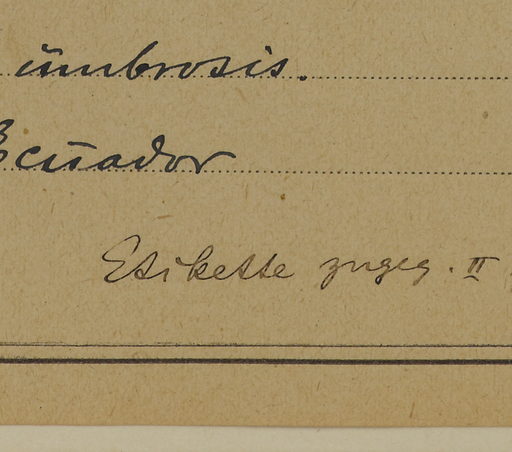 umbrosis.
Ecuador
Etikette zugeg. II